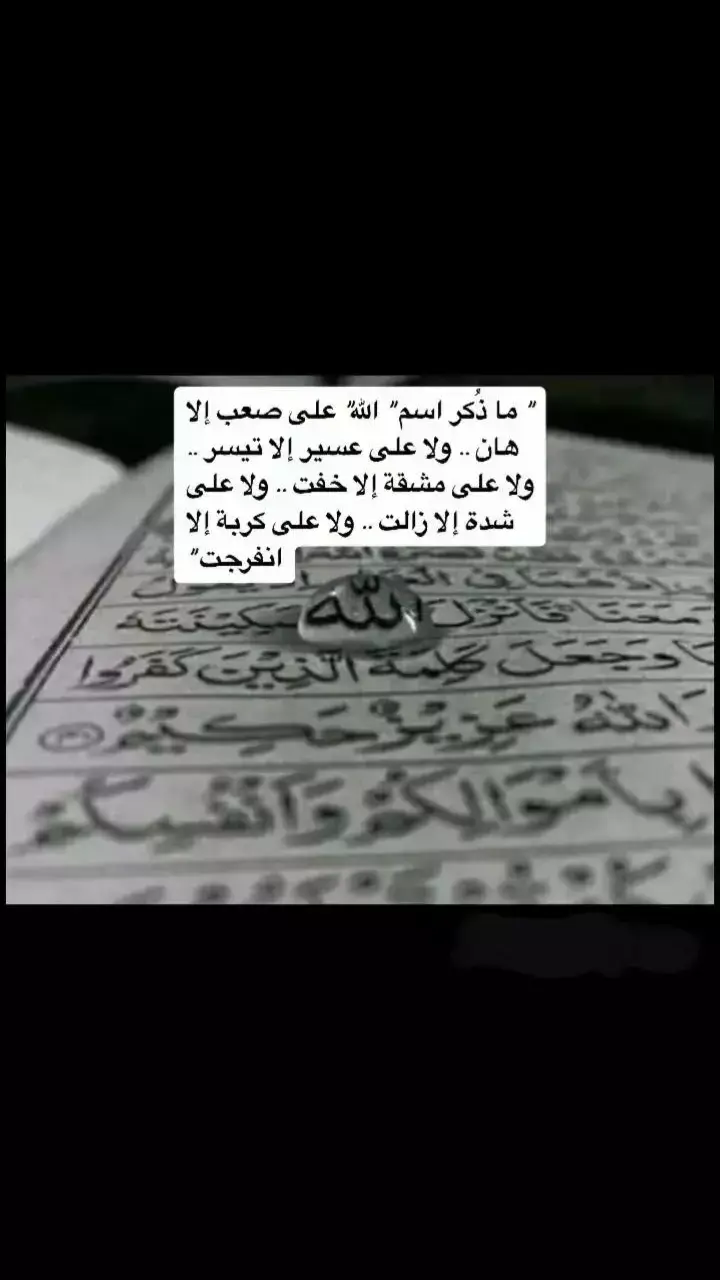 ” ما ذُكر اسم” الله” على صعب إلا
هان .. ولا على عسير إلا تيسر ..
ولا على مشقة إلا خفت .. ولا على
شدة إلا زالت .. ولا على كربة إلا
انفرجت”
مَعَنَا فَأَنزَلَ اللَّهُ سَكِينَتَهُ
وَجَعَلَ كَلِمَةَ الَّذِينَ كَفَرُوا
وَاللَّهُ عَزِيزٌ حَكِيمٌ
بِأَمْوَالِكُمْ وَأَنفُسِكُمْ